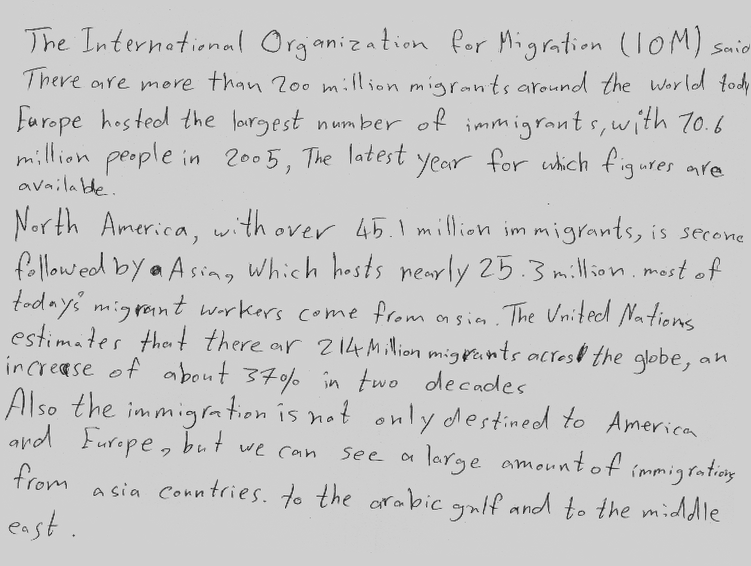 The International Organization for Migration (IOM) said
There are more than 200 million migrants around the world tody
Europe hosted the largest number of immigrants, with 70.6
million people in 2005, The latest year for which figures are
available.
North America, with over 45.1 million immigrants, is secone
followed by Asia, Which hosts nearly 25.3 million. most of
today's migrant workers come from asia. The United Nations
estimates that there ar 214 Million migrants across the globe, an
increase of about 37% in two decades
Also the immigration is not only destined to America
and Europe, but we can see a large amount of immigrations
from asia countries. to the arabic gulf and to the middle
east.